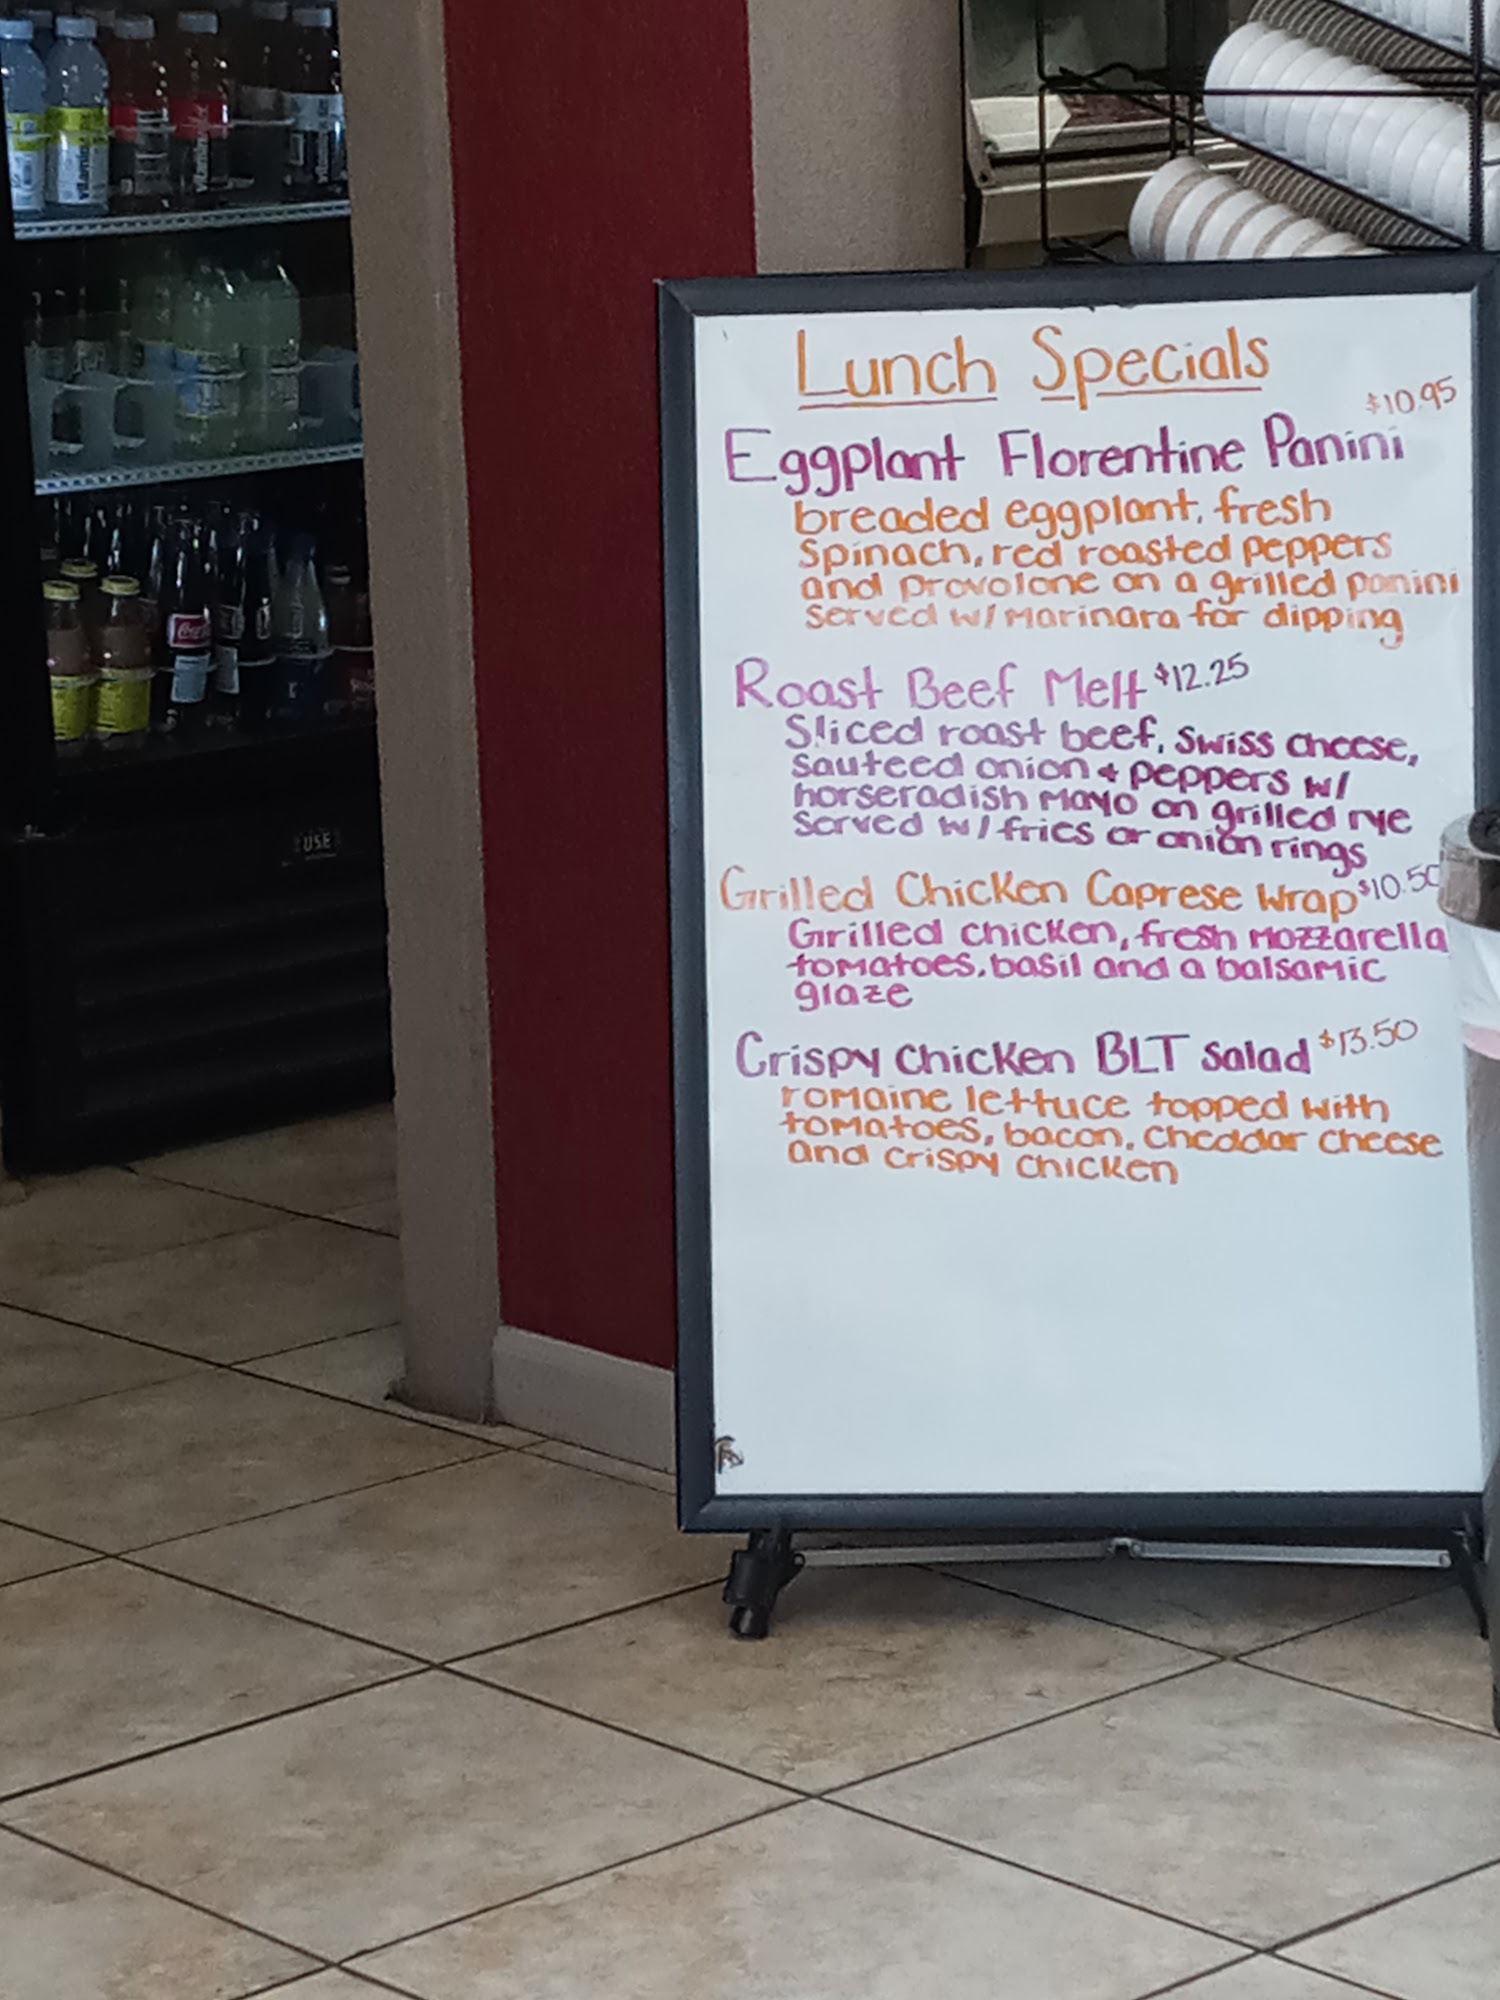 Lunch Specials
$10.95
Eggplant Florentine Panini
breaded eggplant, fresh
Spinach, red roasted peppers
and provolone on a grilled panini
Served w/ Marinara for dipping
Roast Beef Melt $12.25
Sliced roast beef, Swiss cheese,
sauteed onion + peppers w/
horseradish mayo on grilled rye
Served w/ fries or onion rings
Grilled Chicken Caprese Wrap $10.50
Grilled chicken, fresh mozzarella
tomatoes, basil and a balsamic
glaze
Crispy Chicken BLT Salad $13.50
romaine lettuce topped with
tomatoes, bacon, cheddar cheese
and crispy chicken
USE
Coca-Cola
vitamin